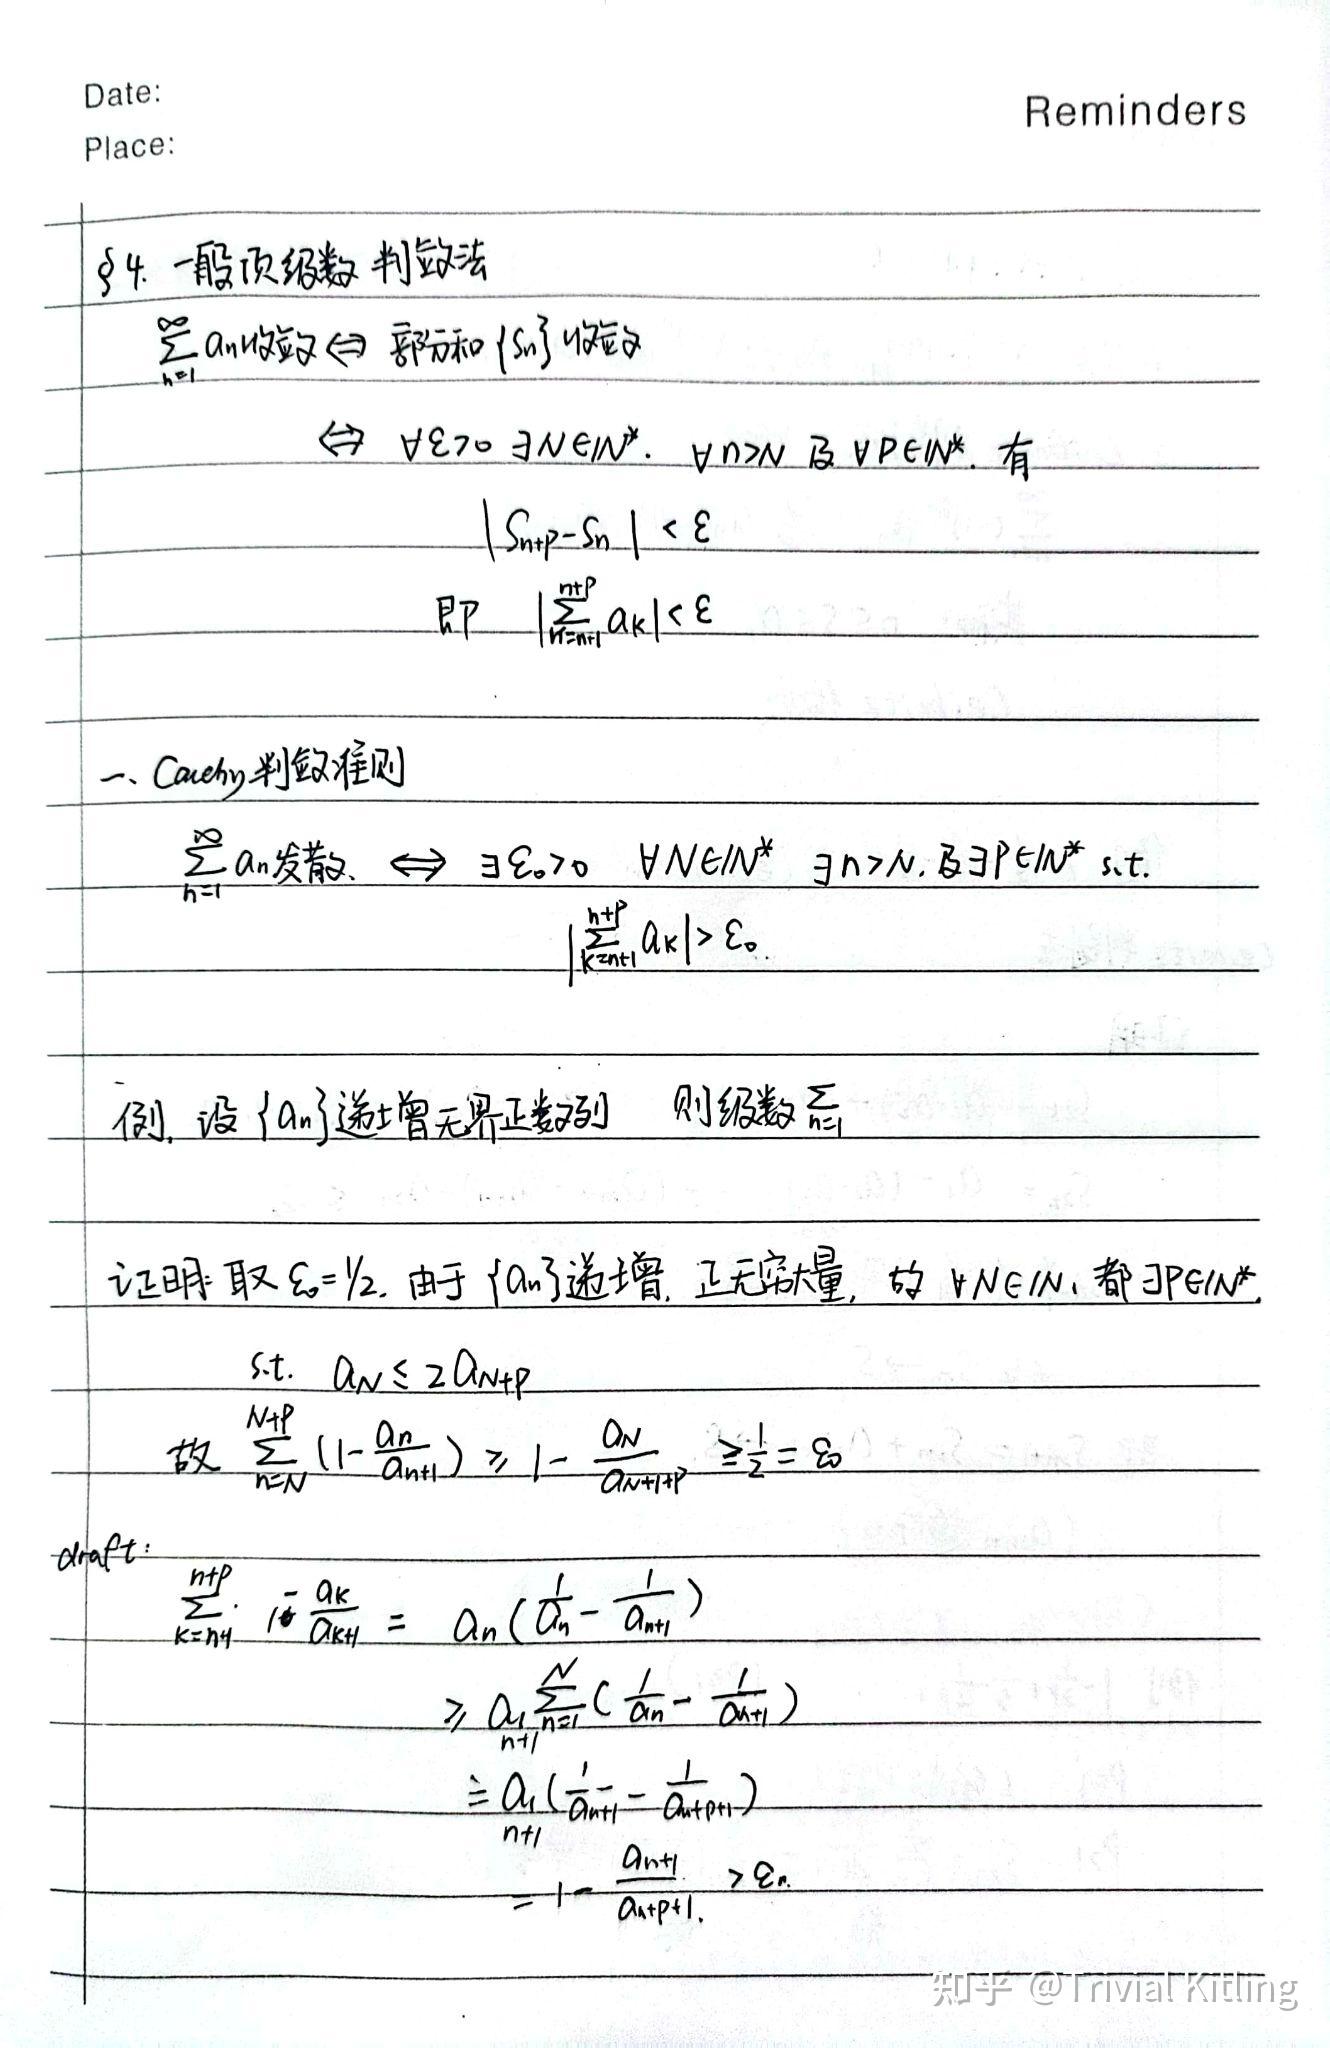 Date:
Place:
Reminders
§4. 一般项级数判敛法
∑_{n=1}^{∞} an收敛 ⇔ 部分和{Sn}收敛
⇔ ∀ε>0 ∃N∈N*. ∀n>N 及 ∀P∈N*. 有
|S_{n+p}-Sn| < ε
即 |∑_{n=n+1}^{n+p} ak| < ε
一、Cauchy判敛准则
∑_{n=1}^{∞} an发散. ⇔ ∃ε₀>0 ∀N∈N* ∃n>N. 及∃P∈N* s.t.
|∑_{k=n+1}^{n+p} ak| > ε₀.
例. 设{an}递增无界正数列 则级数∑_{n=1}
证明: 取 ε₀=1/2. 由于{an}递增. 正无穷大量, 故 ∀N∈N, 都∃P∈N*.
s.t. a_N ≤ 2a_{N+P}
故 ∑_{n=N}^{N+P} (1 - an/a_{n+1}) ≥ 1 - a_N/a_{N+1+P} ≥ 1/2 = ε₀
draft:
∑_{k=n+1}^{n+p} 1 - ak/a_{k+1} = an(1/an - 1/a_{n+1})
≥ a_{n+1} ∑_{n=1}^{N} (1/an - 1/a_{n+1})
= a_{n+1} (1/a_{n+1} - 1/a_{n+p+1})
= 1 - a_{n+1}/a_{n+p+1}. > ε
知乎 @Trivial Kitling